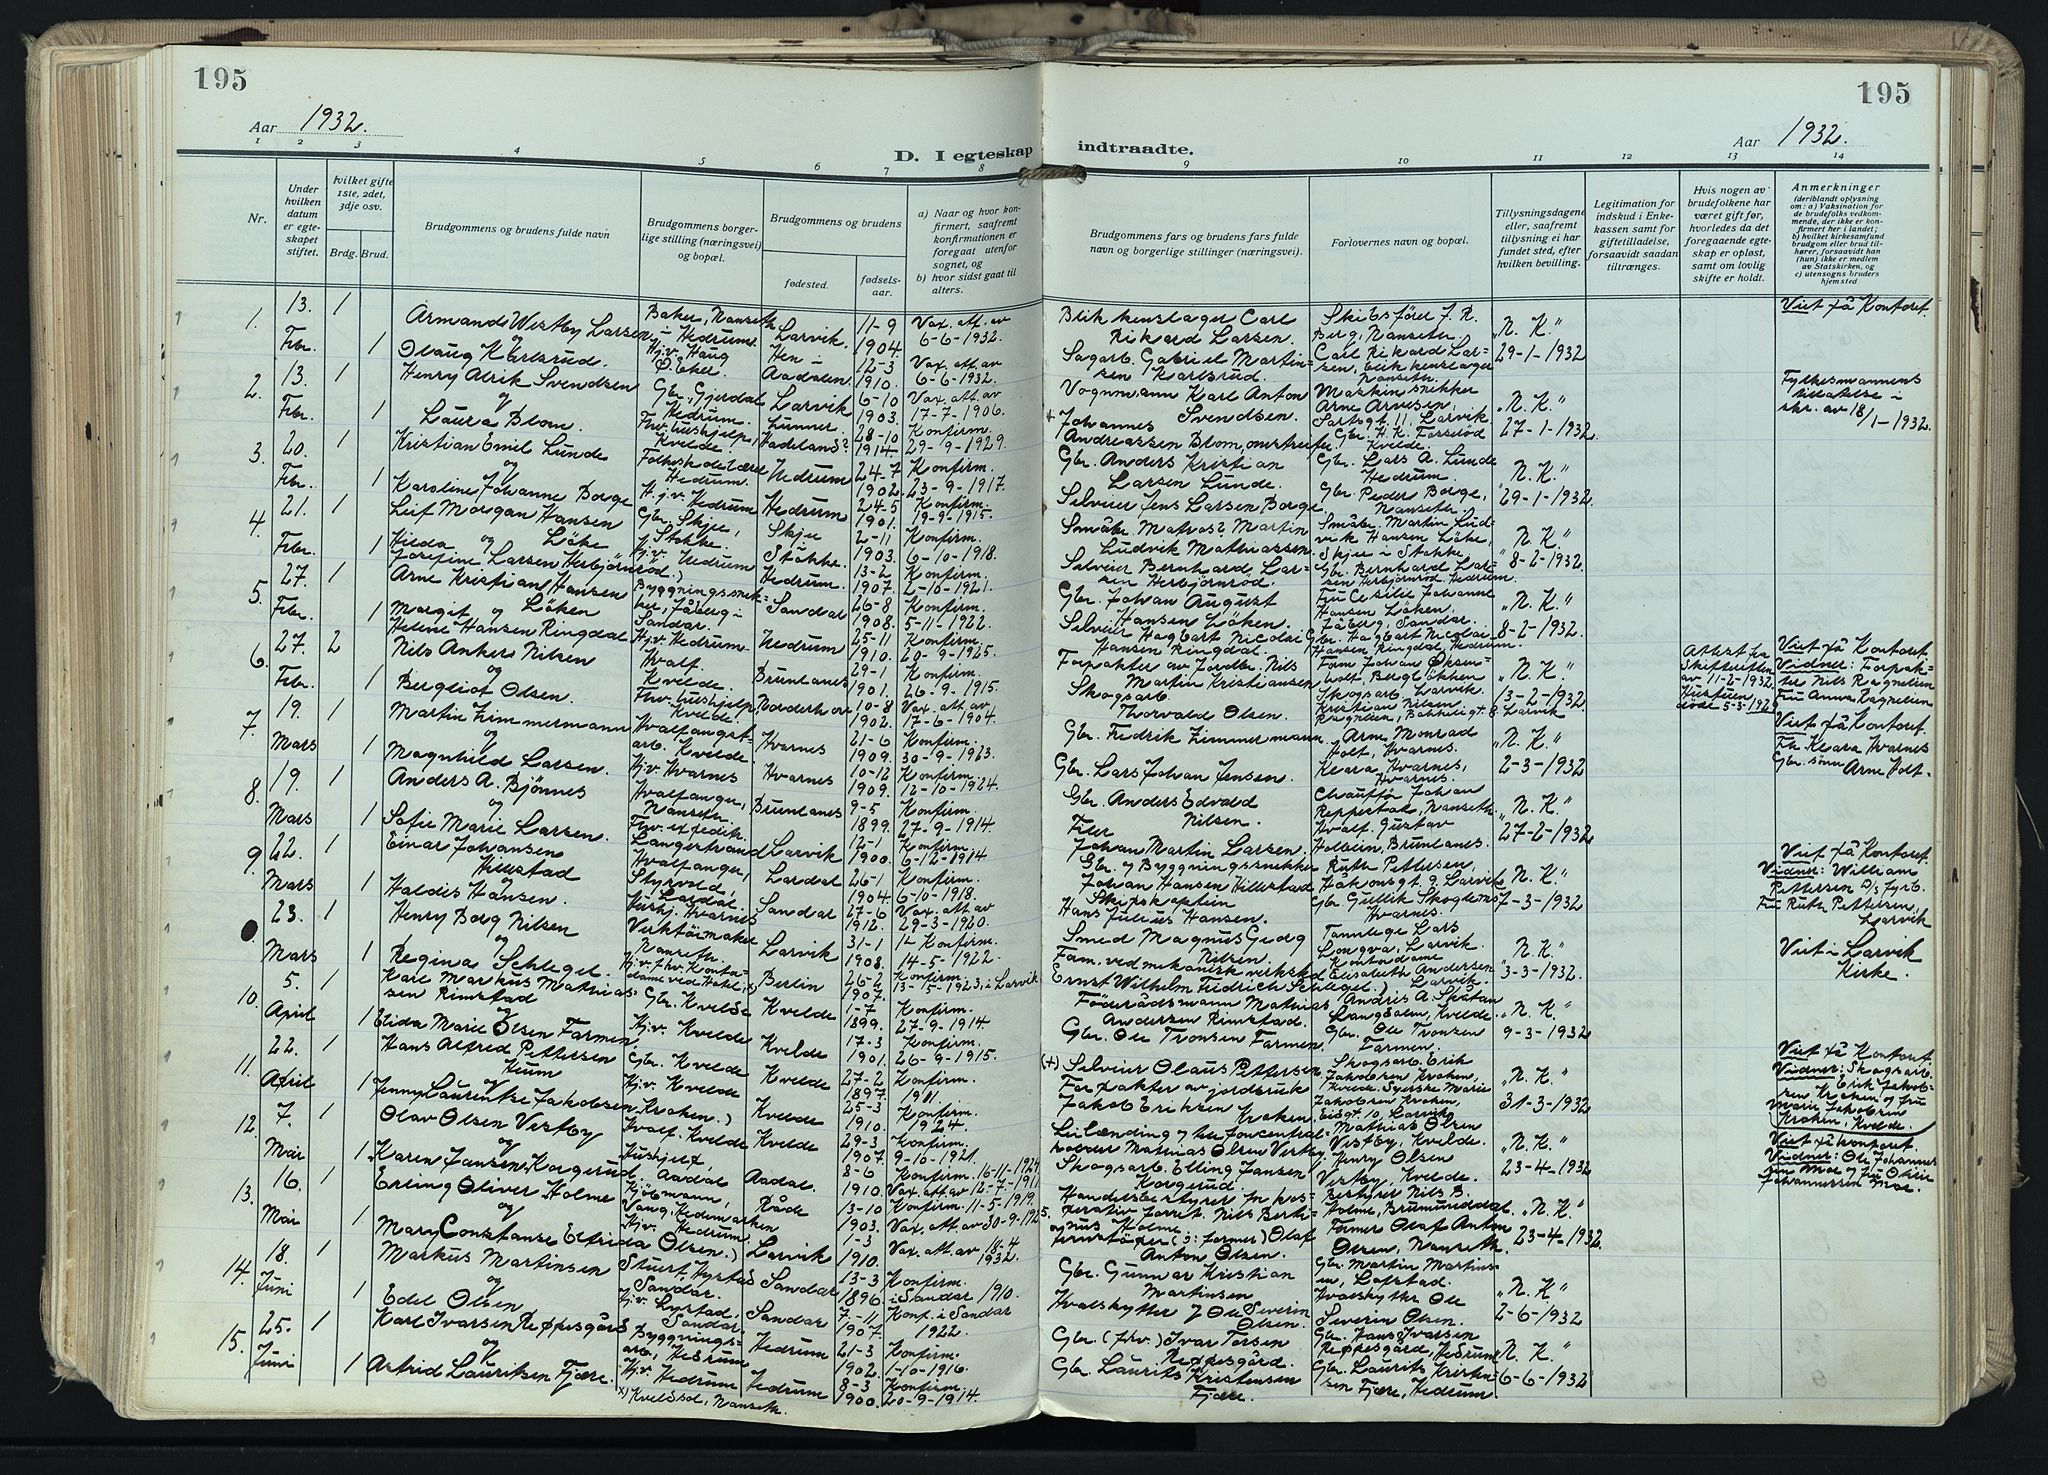 195
195
Aar 1932.
Aar 1932.
D. I egteskap indtraadte.
1 2 3 4 5 6 7 8 9 10 11 12 13 14
Nr.
Under hvilken datum er egteskapet stiftet.
Hvilket gifte 1ste, 2det, 3dje osv.
Brdg. Brud.
Brudgommens og brudens fulde navn
Brudgommens borgerlige stilling (næringsvei) og bopæl.
Brudgommens og brudens
fødested.
fødselsaar.
a) Naar og hvor konfirmert, saafremt konfirmationen er foregaat utenfor sognet, og
b) hvor sidst gaat til alters.
Brudgommens fars og brudens fars fulde navn og borgerlige stillinger (næringsvei).
Forlovernes navn og bopæl.
Tillysningsdagene eller, saafremt tillysning ei har fundet sted, efter hvilken bevilling.
Legitimation for indskud i Enkekassen samt for giftetilladelse, forsaavidt saadan tiltrænges.
Hvis nogen av brudefolkene har været gift før, hvorledes da det foregaaende egteskap er opløst, samt om lovlig skifte er holdt.
Anmerkninger (deriblandt oplysning om: a) Vaksination for de brudefolks vedkommende, der ikke er konfirmert her i landet; b) hvilket kirkesamfund brudgom eller brud tilhører, forsaavidt han (hun) ikke er medlem av Statskirken, og c) utensogns bruders hjemsted
1. 13. Febr. 1 1
Armand Westby Larsen
og
Olaug Karlsrud.
Baker, Nanseth i Hedrum.
Hj.v. Haug Ø. Eker.
Larvik. 11-9 1904. Vax. att. av 6-6-1932.
Hen i Aadalen. 12-3 1910. Vax. att. av 6-6-1932.
Blikkenslager Carl Rikard Larsen.
Sagarb. Gabriel Martinsen Karlsrud.
Skibsfører J. R. Berg, Nanseth.
Carl Rikard Larsen, blikkenslager Nanseth.
"N. K." 29-1-1932
Viet på Kontoret.
2. 13. Febr. 1 1
Henry Alrik Svendsen
og
Laura Blom.
Gbr. Gjerdal Hedrum.
Fhv. hushjelp, Kvelde.
Larvik 6-10 1903. Vax. att. av 17-7-1906.
Lunner Hadeland? 28-10 1914 Konfirm. 29-9-1929.
Vognmann Karl Anton Svendsen.
+ Johannes Andreassen Blom, omstreifer
Maskinsnekker Arne Arnesen, 11, Larvik.
Gbr. H. K. Kvelde.
"N. K." 27-1-1932.
Fylkesmannens tillatelse i skr. av 18/1-1932.
3. 20. Febr. 1 1
Kristian Emil Lunde
og
Karoline Johanne Borge
Hedrum.
Hj.v. Hedrum
Hedrum 24-7 1902. Konfirm. 23-9-1917.
Hedrum 24-5 1901. Konfirm. 19-9-1915.
Gbr. Anders Kristian Larsen Lunde.
Selveier Jens Larsen Borge
Gbr. Lars A. Lunde Hedrum.
Gbr. Peder Borge, Nanseth.
"N. K." 29-1-1932.
4. 21. Febr. 1 1
Leif Morgan Hansen Løke
og
Hilda Josefine Larsen Herbjørnrød.)
Gbr. Skje, Stokke.
Hj.v. Hedrum
Skje Stokke. 2-11 1903. Konfirm. 6-10-1918.
Hedrum. 13-2 1907. Konfirm. 2-10-1921.
Småbr. Mathias? Martin Ludvik Mathiassen.
Selveier Bernhard Larsen Herbjørnrød.
Småbr. Martin Ludvik Hansen Løke, Skje i Stokke.
Gbr. Bernhard Larsen Herbjørnrød. Hedrum.
"N. K." 8-2-1932
5. 27. Febr. 1 1
Arne Kristian Hansen Løken
og
Margit Helene Hansen Ringdal
Byggningssnekker, Fåberg i Sandar.
Hj.v. Hedrum.
Sandar 26-8 1908. Konfirm. 5-11-1922.
Hedrum 25-11 1910. Konfirm. 20-9-1925.
Gbr. Johan August Hansen Løken.
Selveier Hagbart Nicolai Hansen Ringdal.
Fru Cesilie Johanne Hansen Løken, Fåberg, Sandar.
Gbr. Hagbart Nicolai Hansen Ringdal, Hedrum
"N. K." 8-2-1932.
6. 27. Febr. 2 1
Nils Ankers Nilsen
og
Bergliot Olsen.
Hvalf. Kvelde.
Fhv. hushjelp, Kvelde.
Brunlanes 29-1 1901. Konfirm. 26-9-1915.
Norderhov 10-8 1902. Vax. att. av 17-6-1904.
Forpakter av jordbr. Nils Martin Kristiansen
Skogsarb. Thorvald Olsen.
Skogsarb. Kristian Nilsen Ragnelien, Larvik
"N. K." 13-2-1932
Attest fra Skifteretten av 11-2-1932. Hustruen døde 5-3-192
Viet på Kontoret
Vidner: Forpakter Nils Ragnelien
Fru Anna Ragnelien
7. 19. Mars 1 1
Martin Zimmermann
og
Magnhild Larsen.
Hvalfangstarb. Kvelde
Hj.v. Hvarnes
Hvarnes 21-6 1909. Konfirm. 30-9-1923.
Hvarnes 10-12 1909. Konfirm. 12-10-1924.
Gbr. Fredrik Zimmermann.
Gbr. Lars Johan Jensen.
Arne Monrad Holt, Hvarnes.
Klara Hvarnes, Hvarnes.
"N. K." 2-3-1932
Viet på Kontoret.
Fr. Klara Hvarnes
Gbr. sønn Arne Holt.
8. 19. Mars 1 1
Anders A. Bjønnes
og
Sofie Marie Larsen.
Hvalfanger, Nanseth.
Fhv. expedit. Langestrand
Brunlanes 9-5 1899. Konfirm. 27-9-1914.
Larvik 12-1 1900. Konfirm. 6-12-1914
Gbr. Anders Edvald Nilsen.
Filer Johan Martin Larsen.
Chauffør Johan Reppestad, Nanseth.
Hvalf. Gustav Holbein, Brunlanes.
"N. K" 27-2-1932
9. 22. Mars 1 1
Einar Johansen Hillestad
og
Haldis Hansen.
Hvalfanger, Styrvold, Lardal.
Hushj. Hvarnes
Lardal 26-1 1904. Konfirm. 6-10-1918.
Sandar 27-6 1912. Vax. att. av 29-3-1920.
Gbr. og Byggningssnekker Johan Hansen Hillestad
Skipskaptein Hans Julius Hansen.
Ruth Pettersen, Håkonsgt. 9. Larvik
Gbr. Gullik Hvarnes.
"N. K." 7-3-1932
Viet på Kontoret.
Vidner: William Pettersen
Fru Ruth Pettersen, Larvik
23. Mars 1 1
Henry Borg Nilsen
og
Regina Schlegel.
Verktøimaker Nanseth.
Larvik 31-1 1908. Konfirm. 14-5-1922.
Berlin 26-2 1907. Konfirm. 13-5-1923, i Larvik
Smed Magnus Georg Nilsen.
Fam. ved mekanisk verksted Ernst Wilhelm Fredrich Schlegel.)
Tannlege Lars Longva, Larvik
Kontordame Elisabeth Andersen Larvik.
"N. K." 3-3-1932.
Viet i Larvik Kirke.
10. 5. April 1 1
Karl Markus Mathiassen Rimstad
og
Elida Marie Olsen Farmen.
Gbr. Kvelde
Hj.v. Kvelde
Kvelde 1-7 1899. Konfirm. 27-9-1914
Kvelde 17-3 1901. Konfirm. 26-9-1915.
Föderådsmann Mathias Andersen Rimstad.
Gbr. Ole Tronsen Farmen
Andris A. Skåtan Kvelde
Gbr. Ole Tronsen Farmen.
"N. K." 9-3-1932
11. 22. April 1 1
Hans Alfred Pettersen Heum
og
Jenny Laurentse Jakobsen Kroken.)
Gbr. Kvelde
Hj.v. Kvelde
Kvelde 27-2 1897. Konfirm. 1911
Kvelde 25-3 1910. Konfirm. 1924.
(+) Selveier Olaus Pettersen
Forpakter av jordbruk Jakob Eriksen Kroken.
Skogsarb. Erik Jakobsen Kroken, Kvelde. Syerske Marie Jakobsen Kroken, 10, Larvik
"N. K." 31-3-1932
Viet på Kontoret
Vidner: Skogsarb. Erik Jakobsen Kroken og fru Marie Jakobsen Kroken, Kvelde.
12. 7. Mai 1 1
Olav Olsen Vestby
og
Karen Jansen Korgerud
Hvalf. Kvelde
Hushjelp, Aadal
Kvelde 29-3 1907. Konfirm. 9-10-1921.
Aadal. 8-6 1910. Konfirm. 16-11-1924 Vax. att. av 12-7-1911
Mathias Olsen Vestby
Skogsarb. Elling Jansen Korgerud.
Mathias Olsen Vestby, Kvelde.
Henry Olsen Vestby, Kvelde.
"N. K." 23-4-1932
Viet på kontoret.
Vidner: Ole Johannessen Moe og Johannessen Moe.
13. 16. Mai 1 1
Erling Oliver Holme
og
Mary Constanse Elfrida Olsen.)
Kjøbmann, Vang, Hedemarken
Hj.v. Hedrum
Råde 13-10 1903. Konfirm. 11-5-1919. Vax. att. av 30-9-1925.
Larvik 1-3 1910. Vax. att. av 18-4 1932.
Nils Bertinus Holme.
Olaf Anton Olsen.
Bestyrer Nils B. Holme, Brumunddal.
Former Olaf Anton Olsen, Nanseth.
"N. K" 23-4-1932.
14. 18. Juni 1 1
Markus Martinsen
og
Edel Olsen
Stuert Sandar.
Hj.v. Sandar.
Sandar 13-3 1896. Konfirm. i Sandar 1910.
Sandar 7-11 1907. Konf. i Sandar 1922.
Gbr. Gunnar Kristian Martinsen
Hvalskytter Ole Severin Olsen.
Gbr. Martin Martinsen, Lofstad.
Hvalskytter Ole Severin Olsen.
"N. K" 2-6-1932
15. 25. Juni 1 1
Karl Ivarsen Reppesgård
og
Astrid Lauritsen Fjære.
Byggningsarb., Hedrum
Hj.v. Hedrum
Hedrum 21-3 1902. Konfirm. 1-10-1916.
Hedrum 8-3 1900. Konfirm. 20-9-1914.
Gbr. (fhv.) Ivar Torsen Reppesgård.
Gbr. Laurits Kristensen Fjære.
Gbr. Hans Ivarsen Reppesgård, Hedrum
Gbr. Laurits Kristensen Fjære, Hedrum
"N. K" 6-6-1932
x) Kveldsol, Nanseth.